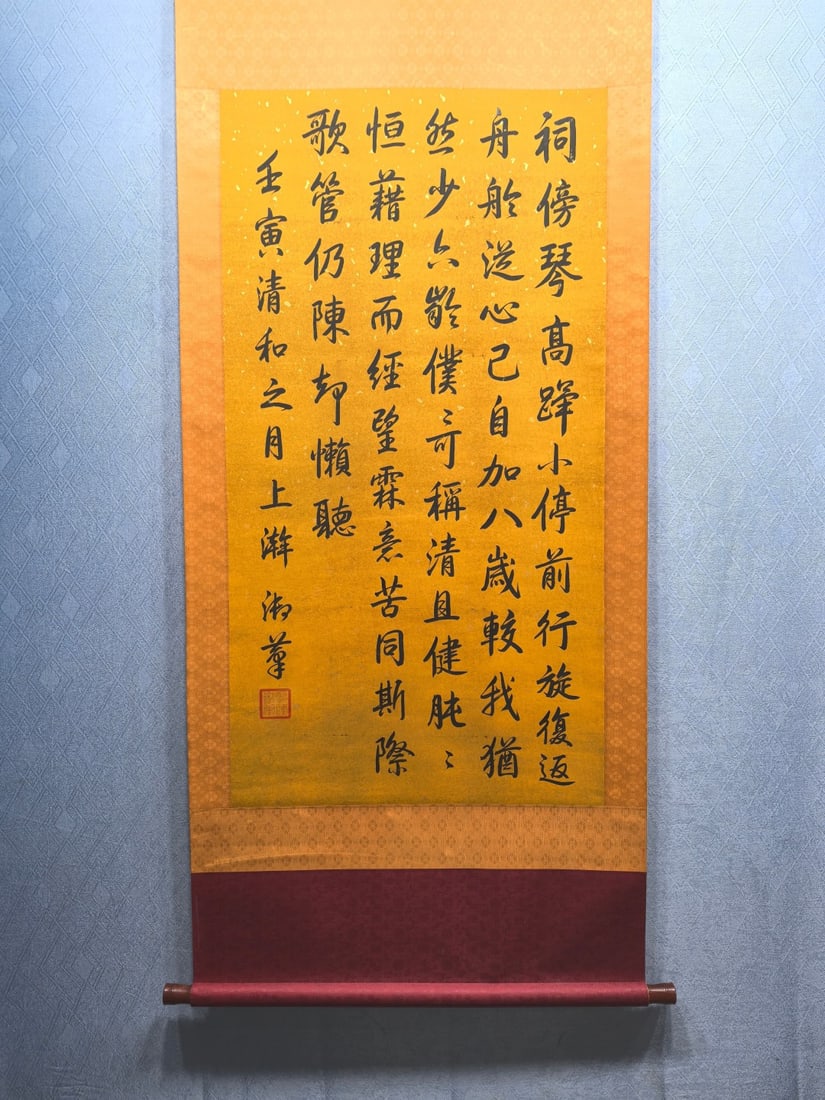 祠傍琴高蹕小停前行旋復返
舟舲從心已自加八歲較我猶
然少六齡僕〻可稱清且健肫〻
恒藉理而經望霖意苦同斯際
歌管仍陳却懶聽
壬寅清和之月上澣 御筆